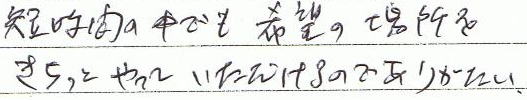 短時間の中でも希望の場所を
きちっとやっていただけるのでありがたい、